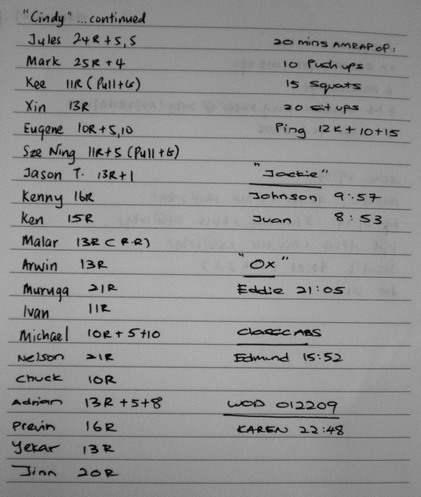 "Cindy" ... continued
Jules 24R + 5, 5
Mark 25R + 4
Kee 11R (Pull+G)
Xin 13R
Eugene 10R + 5, 10
Sze Ning 11R + 5 (Pull+G)
Jason T. 13R + 1
Kenny 16R
Ken 15R
Malar 13R (R.R)
Arwin 13R
Muruga 21R
Ivan 11R
Michael 10R + 5 + 10
Nelson 21R
Chuck 10R
Adrian 13R + 5 + 8
Previn 16R
Yekar 13R
Jinn 20R
20 mins AMRAP OF:
10 Push ups
15 Squats
20 sit ups
Ping 12R + 10 + 15
"Jackie"
Johnson 9:57
Juan 8:53
"OX"
Eddie 21:05
Classic ABS
Edmund 15:52
WOD 012209
KAREN 22:48